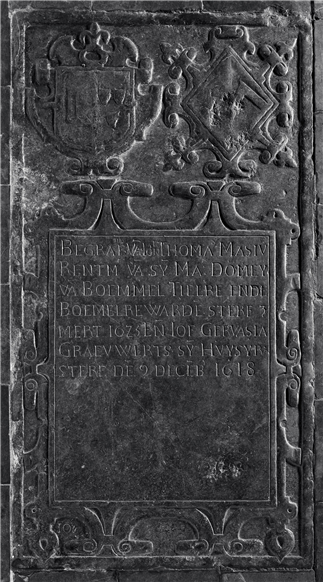 BEGRAEVĒ VĀ THOMA MASIV
RENTM VĀ SY MA DOMEY
VĀ BOEMMEL TIELRE ENDE
BOEMELREWARDE STERF 3
MERT 1625 EN IOF GERVASIA
GRAEVWERTS SY HVYSVR
STERF DE 9 DECEB 1618